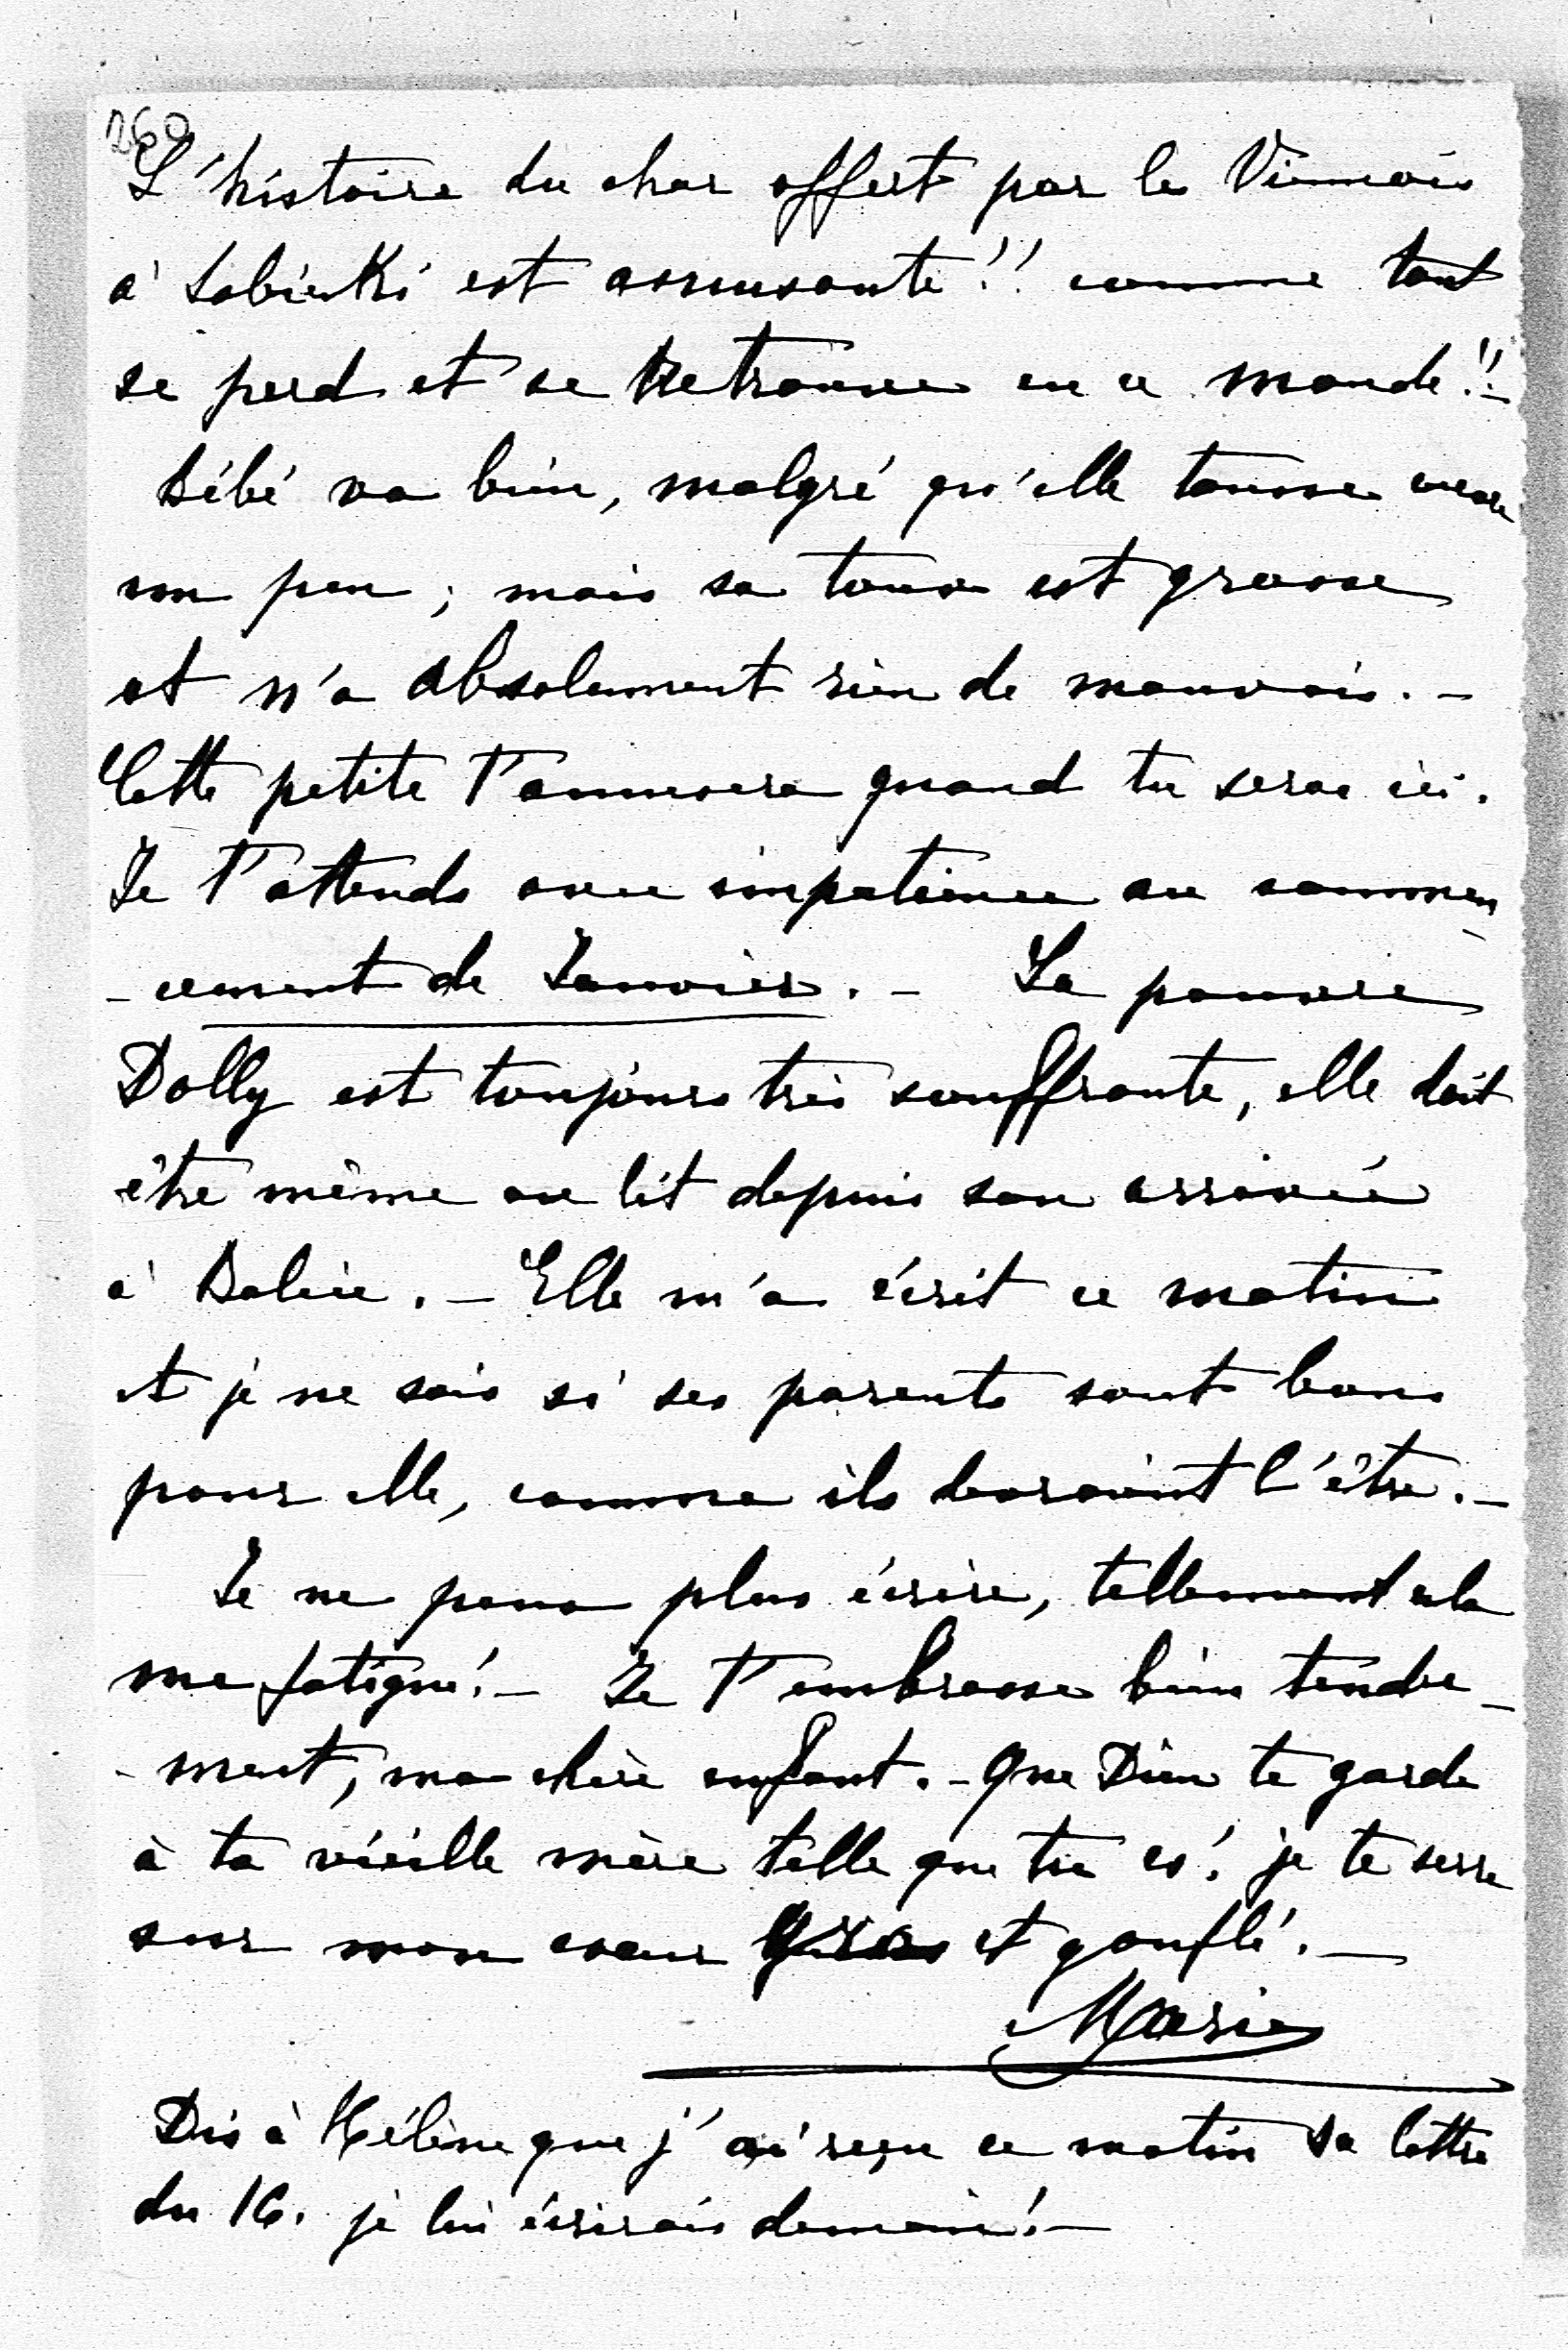 260
L'histoire du char offert par les Viennois
à Sobieski est amusante!! comme tout
se perd et se retrouve en ce monde!! –
Bébé va bien, malgré qu'elle tousse encore
un peu; mais sa toux est grasse
et n'a absolument rien de mauvais. –
Cette petite t'amusera quand tu seras ici.
Je t'attends avec impatience au commen
- cement de Janvier. – La pauvre
Dolly est toujours très souffrante, elle doit
être même au lit depuis son arrivée
à . – Elle m'a écrit ce matin
et je ne sais si ses parents sont bons
pour elle, comme ils l'être. –
Je ne peux plus écrire, tellement cela
me fatigue! – Je t'embrasse bien tendre -
- ment, ma chère enfant. – Que Dieu te garde
à ta vieille mère telle que tu es! je te serre
sur mon cœur gros et gonflé. –
Marie
Dis à Hélène que j'ai reçu ce matin sa lettre
du 16. je lui écrirais demain! –